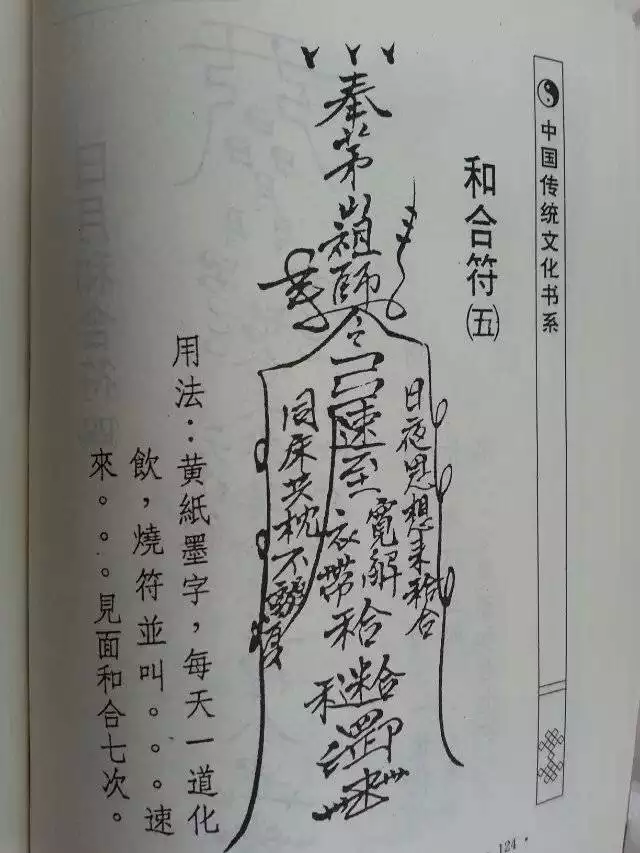 中国传统文化书系
和合符(五)
奉茅山祖師
令
速至
日夜思想来和合
寬解
衣帶
和合
同床共枕不
用法：黄紙墨字，每天一道化
飲，燒符並叫。。。速
來。。。見面和合七次。
124